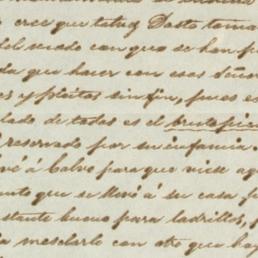 o cree que tatuq Dasto toma
del modo con que se han p
da que hacer con esas Señor
es y pleitos sin fin, pues es
lado de todos es el bruto pic
l reservado por su infamia.
vé á Calvo para que viese ag
nto que se llevó á su casa p
stante bueno para ladrillos, p
a mesclarlo con otro que hay